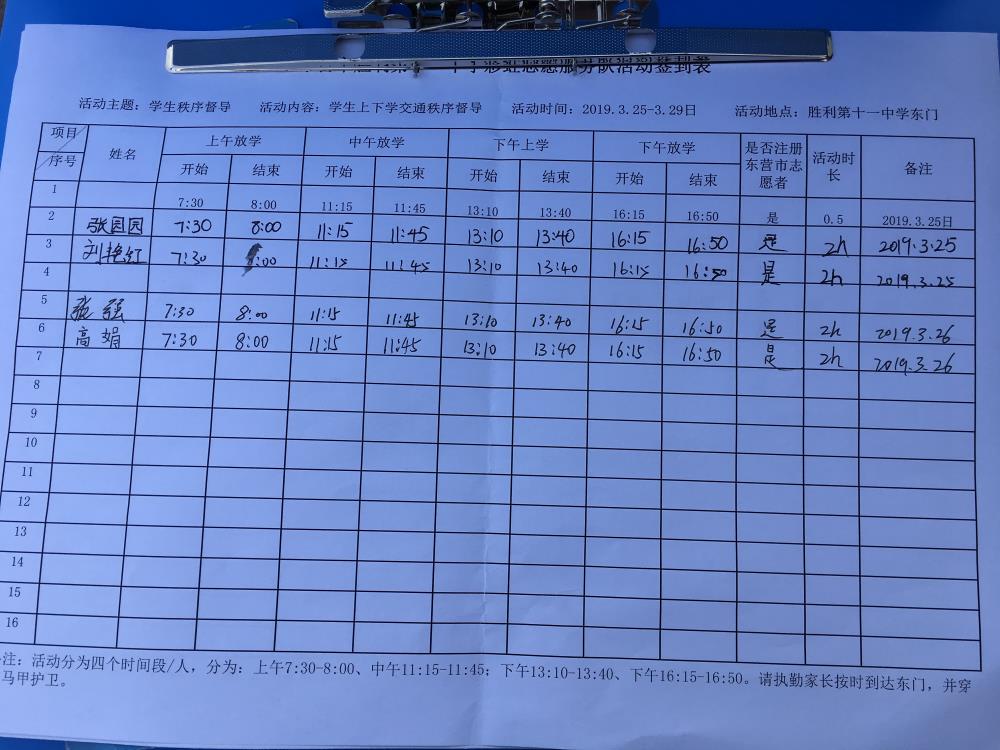 彩虹志愿服务队活动签到表
活动主题：学生秩序督导 活动内容：学生上下学交通秩序督导 活动时间：2019.3.25-3.29日 活动地点：胜利第十一中学东门
项目 序号 姓名 上午放学 中午放学 下午上学 下午放学 是否注册东营市志愿者 活动时长 备注
开始 结束 开始 结束 开始 结束 开始 结束
1 7:30 8:00 11:15 11:45 13:10 13:40 16:15 16:50 是 0.5 2019.3.25日
2 张园园 7:30 8:00 11:15 11:45 13:10 13:40 16:15 16:50 是 2h 2019.3.25
3 刘艳红 7:30 8:00 11:15 11:45 13:10 13:40 16:15 16:50 是 2h 2019.3.25
4
5 张强 7:30 8:00 11:15 11:45 13:10 13:40 16:15 16:50 是 2h 2019.3.26
6 高娟 7:30 8:00 11:15 11:45 13:10 13:40 16:15 16:50 是 2h 2019.3.26
7
8
9
10
11
12
13
14
15
16
注：活动分为四个时间段/人，分为：上午7:30-8:00、中午11:15-11:45；下午13:10-13:40、下午16:15-16:50。请执勤家长按时到达东门，并穿
马甲护卫。